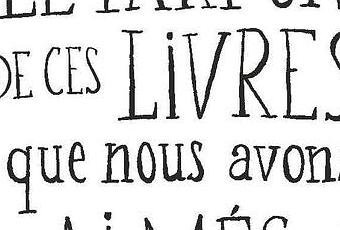 DE CES LiVRES
que nous avons
AiMÉS